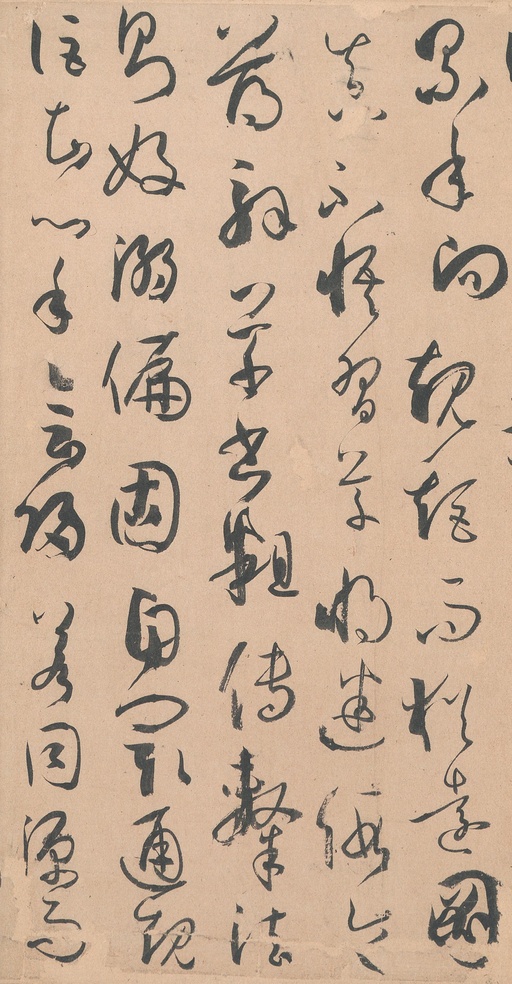 累年向規矩而猶遠圖
真不悟習草將迷假令
薄解草書粗傳隸法
則好溺偏固自閡通規
詎知心手會歸若同源而